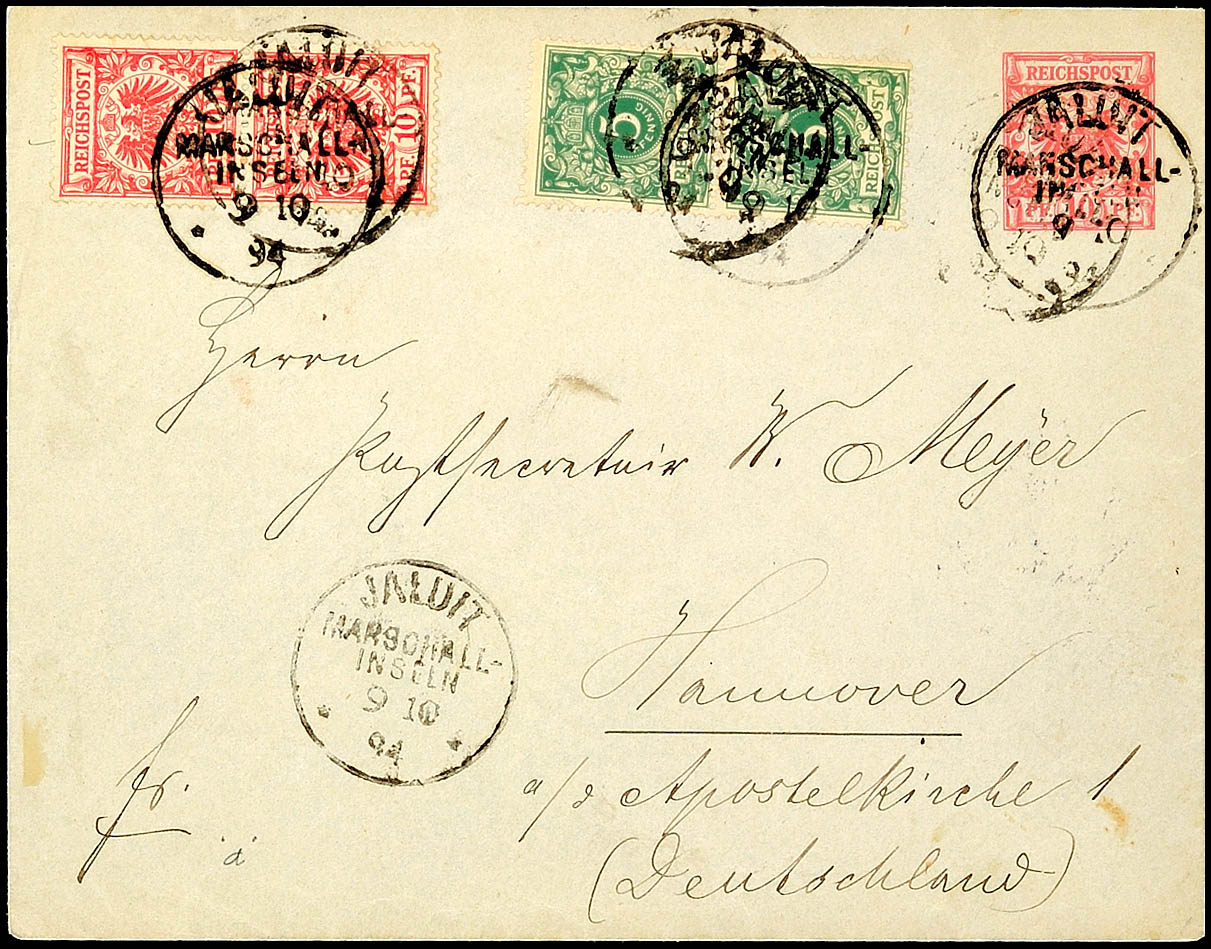 REICHSPOST
10 PF
REICHSPOST
5
REICHSPOST
PF 10 PF
JALUIT
MARSCHALL-
INSELN
9 10
94
JALUIT
MARSCHALL-
INSELN
9 10
94
JALUIT
MARSCHALL-
9 10
94
Herrn
Postsecretair W. Meyer
JALUIT
MARSCHALL-
INSELN
9 10
94
Hannover
fr.
a/d Apostelkirche 1
(Deutschland)